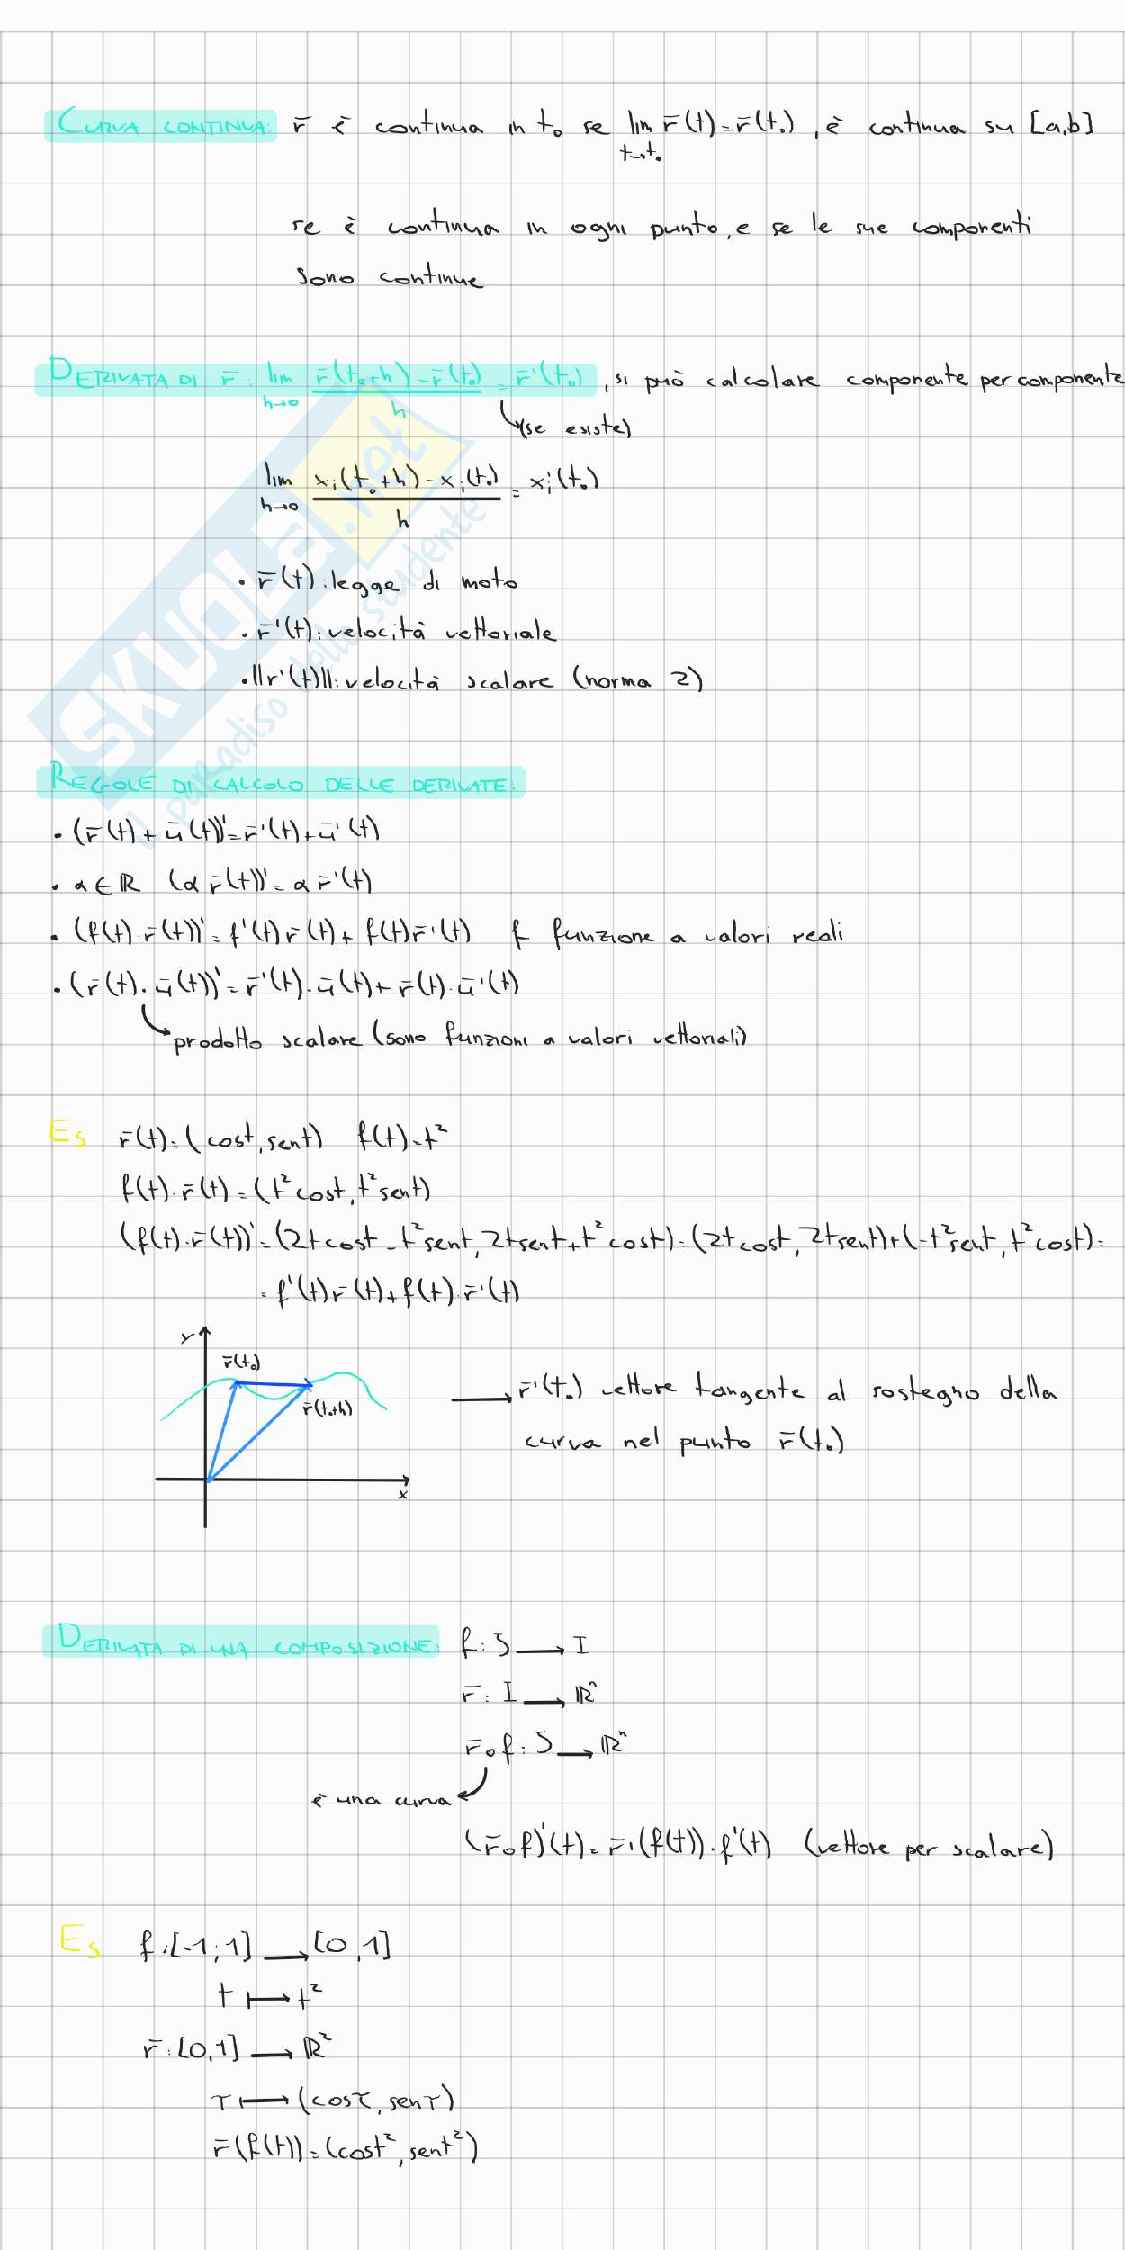 CURVA CONTINUA: r̄ è continua in t₀ se lim r̄(t) = r̄(t₀), è continua su [a,b]
t→t₀
se è continua in ogni punto, e se le sue componenti
sono continue
DERIVATA DI r̄: lim r̄(t₀+h) - r̄(t₀) = r̄'(t₀), si può calcolare componente per componente
h→0 h
(se esiste)
lim xᵢ(t₀+h) - xᵢ(t₀) = xᵢ'(t₀)
h→0 h
• r̄(t): legge di moto
• r̄'(t): velocità vettoriale
• ||r'(t)||: velocità scalare (norma 2)
REGOLE DI CALCOLO DELLE DERIVATE:
• (r̄(t) + ū(t))' = r̄'(t) + ū'(t)
• α∈ℝ (α r̄(t))' = α r̄'(t)
• (f(t) r̄(t))' = f'(t) r̄(t) + f(t) r̄'(t) f funzione a valori reali
• (r̄(t) · ū(t))' = r̄'(t) · ū(t) + r̄(t) · ū'(t)
prodotto scalare (sono funzioni a valori vettoriali)
Es r̄(t) = (cost, sent) f(t) = t²
f(t) · r̄(t) = (t² cost, t² sent)
(f(t) · r̄(t))' = (2t cost - t² sent, 2t sent + t² cost) = (2t cost, 2t sent) + (-t² sent, t² cost) =
= f'(t) r̄(t) + f(t) · r̄'(t)
y
r̄(t₀)
r̄(t₀+h)
x
→ r̄'(t₀) vettore tangente al sostegno della
curva nel punto r̄(t₀)
DERIVATA DI UNA COMPOSIZIONE: f: J → I
r̄: I → ℝⁿ
r̄∘f: J → ℝⁿ
è una curva
(r̄∘f)'(t) = r̄'(f(t)) · f'(t) (vettore per scalare)
Es f: [-1; 1] → [0, 1]
t ↦ t²
r̄: [0,1] → ℝ²
τ ↦ (cosτ, senτ)
r̄(f(t)) = (cost², sent²)
SKUOLA.net
il paradiso dello studente